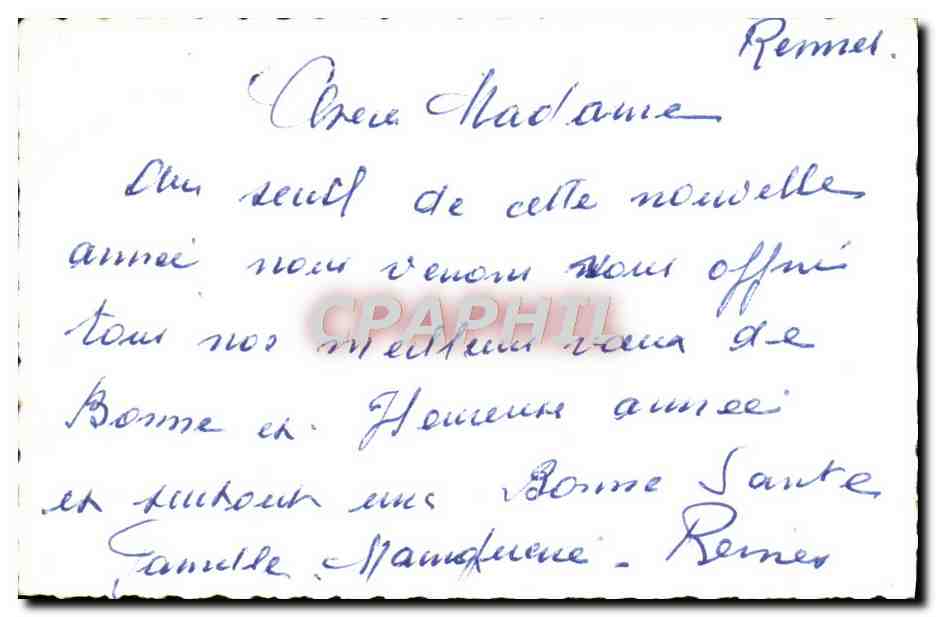 Rennes.
Chère Madame
Au seuil de cette nouvelle
année nous venons vous offrir
CPAPHIL
tous nos meilleurs vœux de
Bonne et Heureuse année
et surtout une Bonne Santé
Famille - Rennes